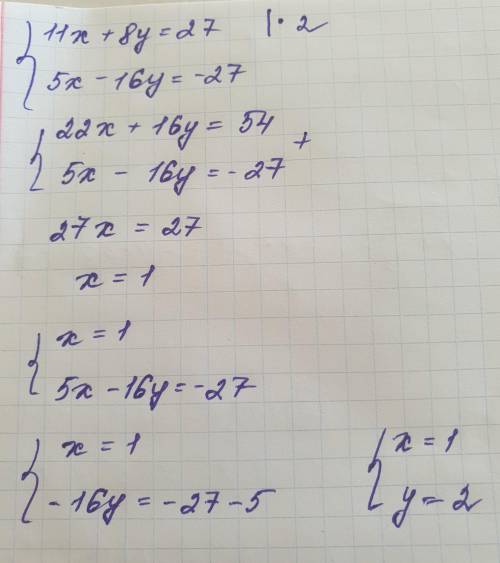 11x + 8y = 27 |· 2
5x - 16y = -27
22x + 16y = 54 +
5x - 16y = -27
27x = 27
x = 1
x = 1
5x - 16y = -27
x = 1
-16y = -27 - 5
x = 1
y = 2